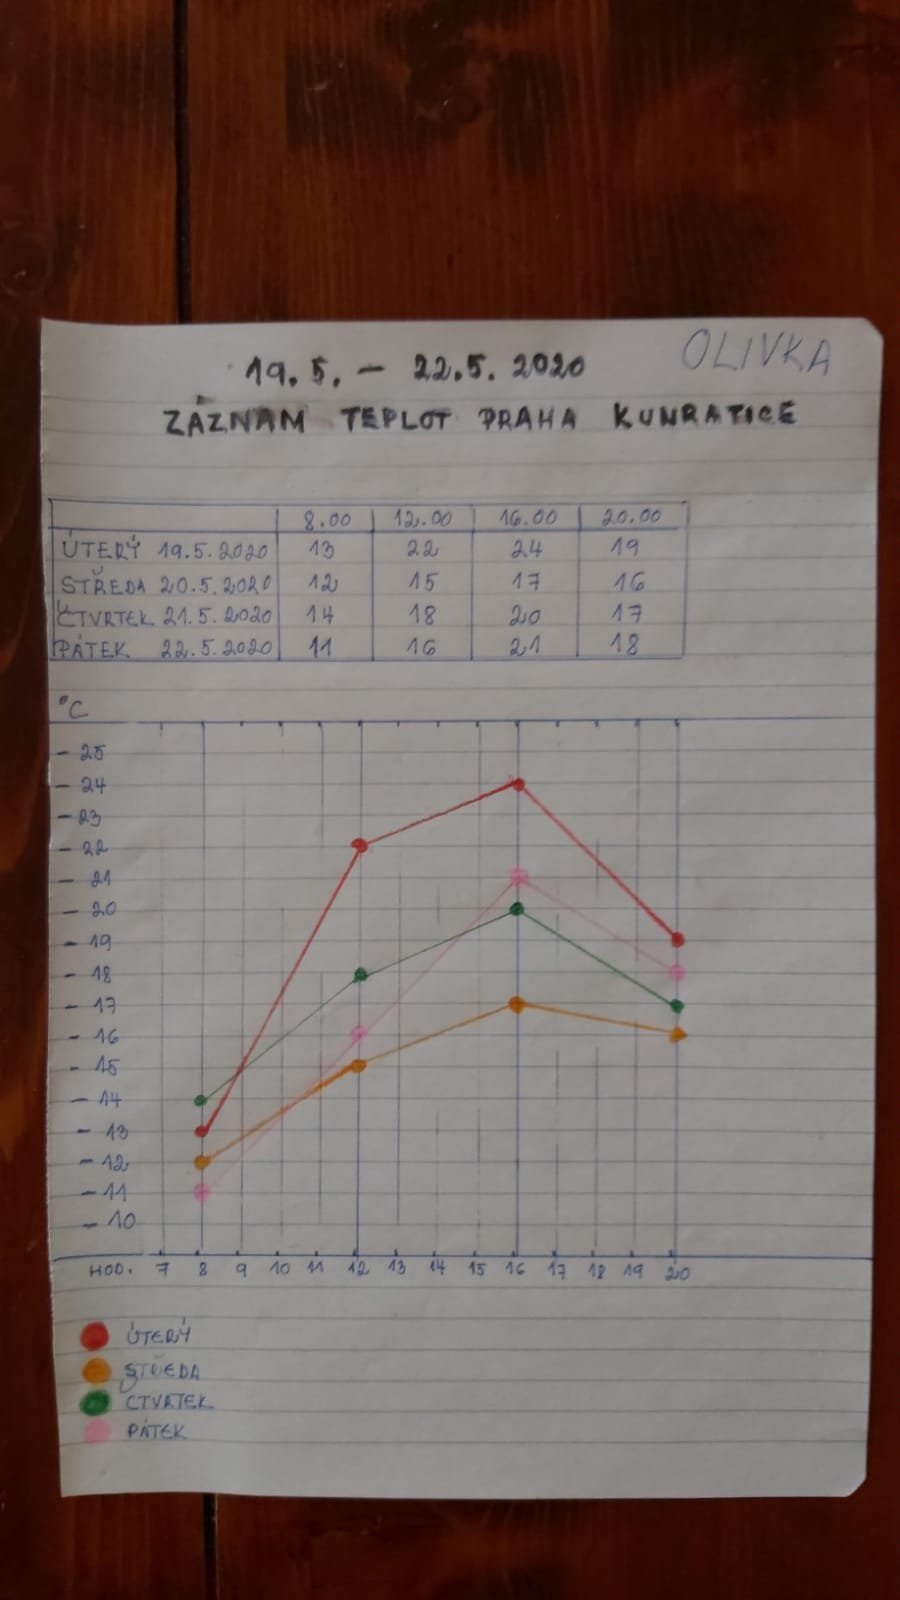 OLIVKA
19.5. – 22.5. 2020
ZÁZNAM TEPLOT PRAHA KUNRATICE
8.00 12.00 16.00 20.00
ÚTERÝ 19.5.2020 13 22 24 19
STŘEDA 20.5.2020 12 15 17 16
ČTVRTEK 21.5.2020 14 18 20 17
PÁTEK 22.5.2020 11 16 21 18
°C
– 25
– 24
– 23
– 22
– 21
– 20
– 19
– 18
– 17
– 16
– 15
– 14
– 13
– 12
– 11
– 10
HOD. 7 8 9 10 11 12 13 14 15 16 17 18 19 20
ÚTERÝ
STŘEDA
ČTVRTEK
PÁTEK